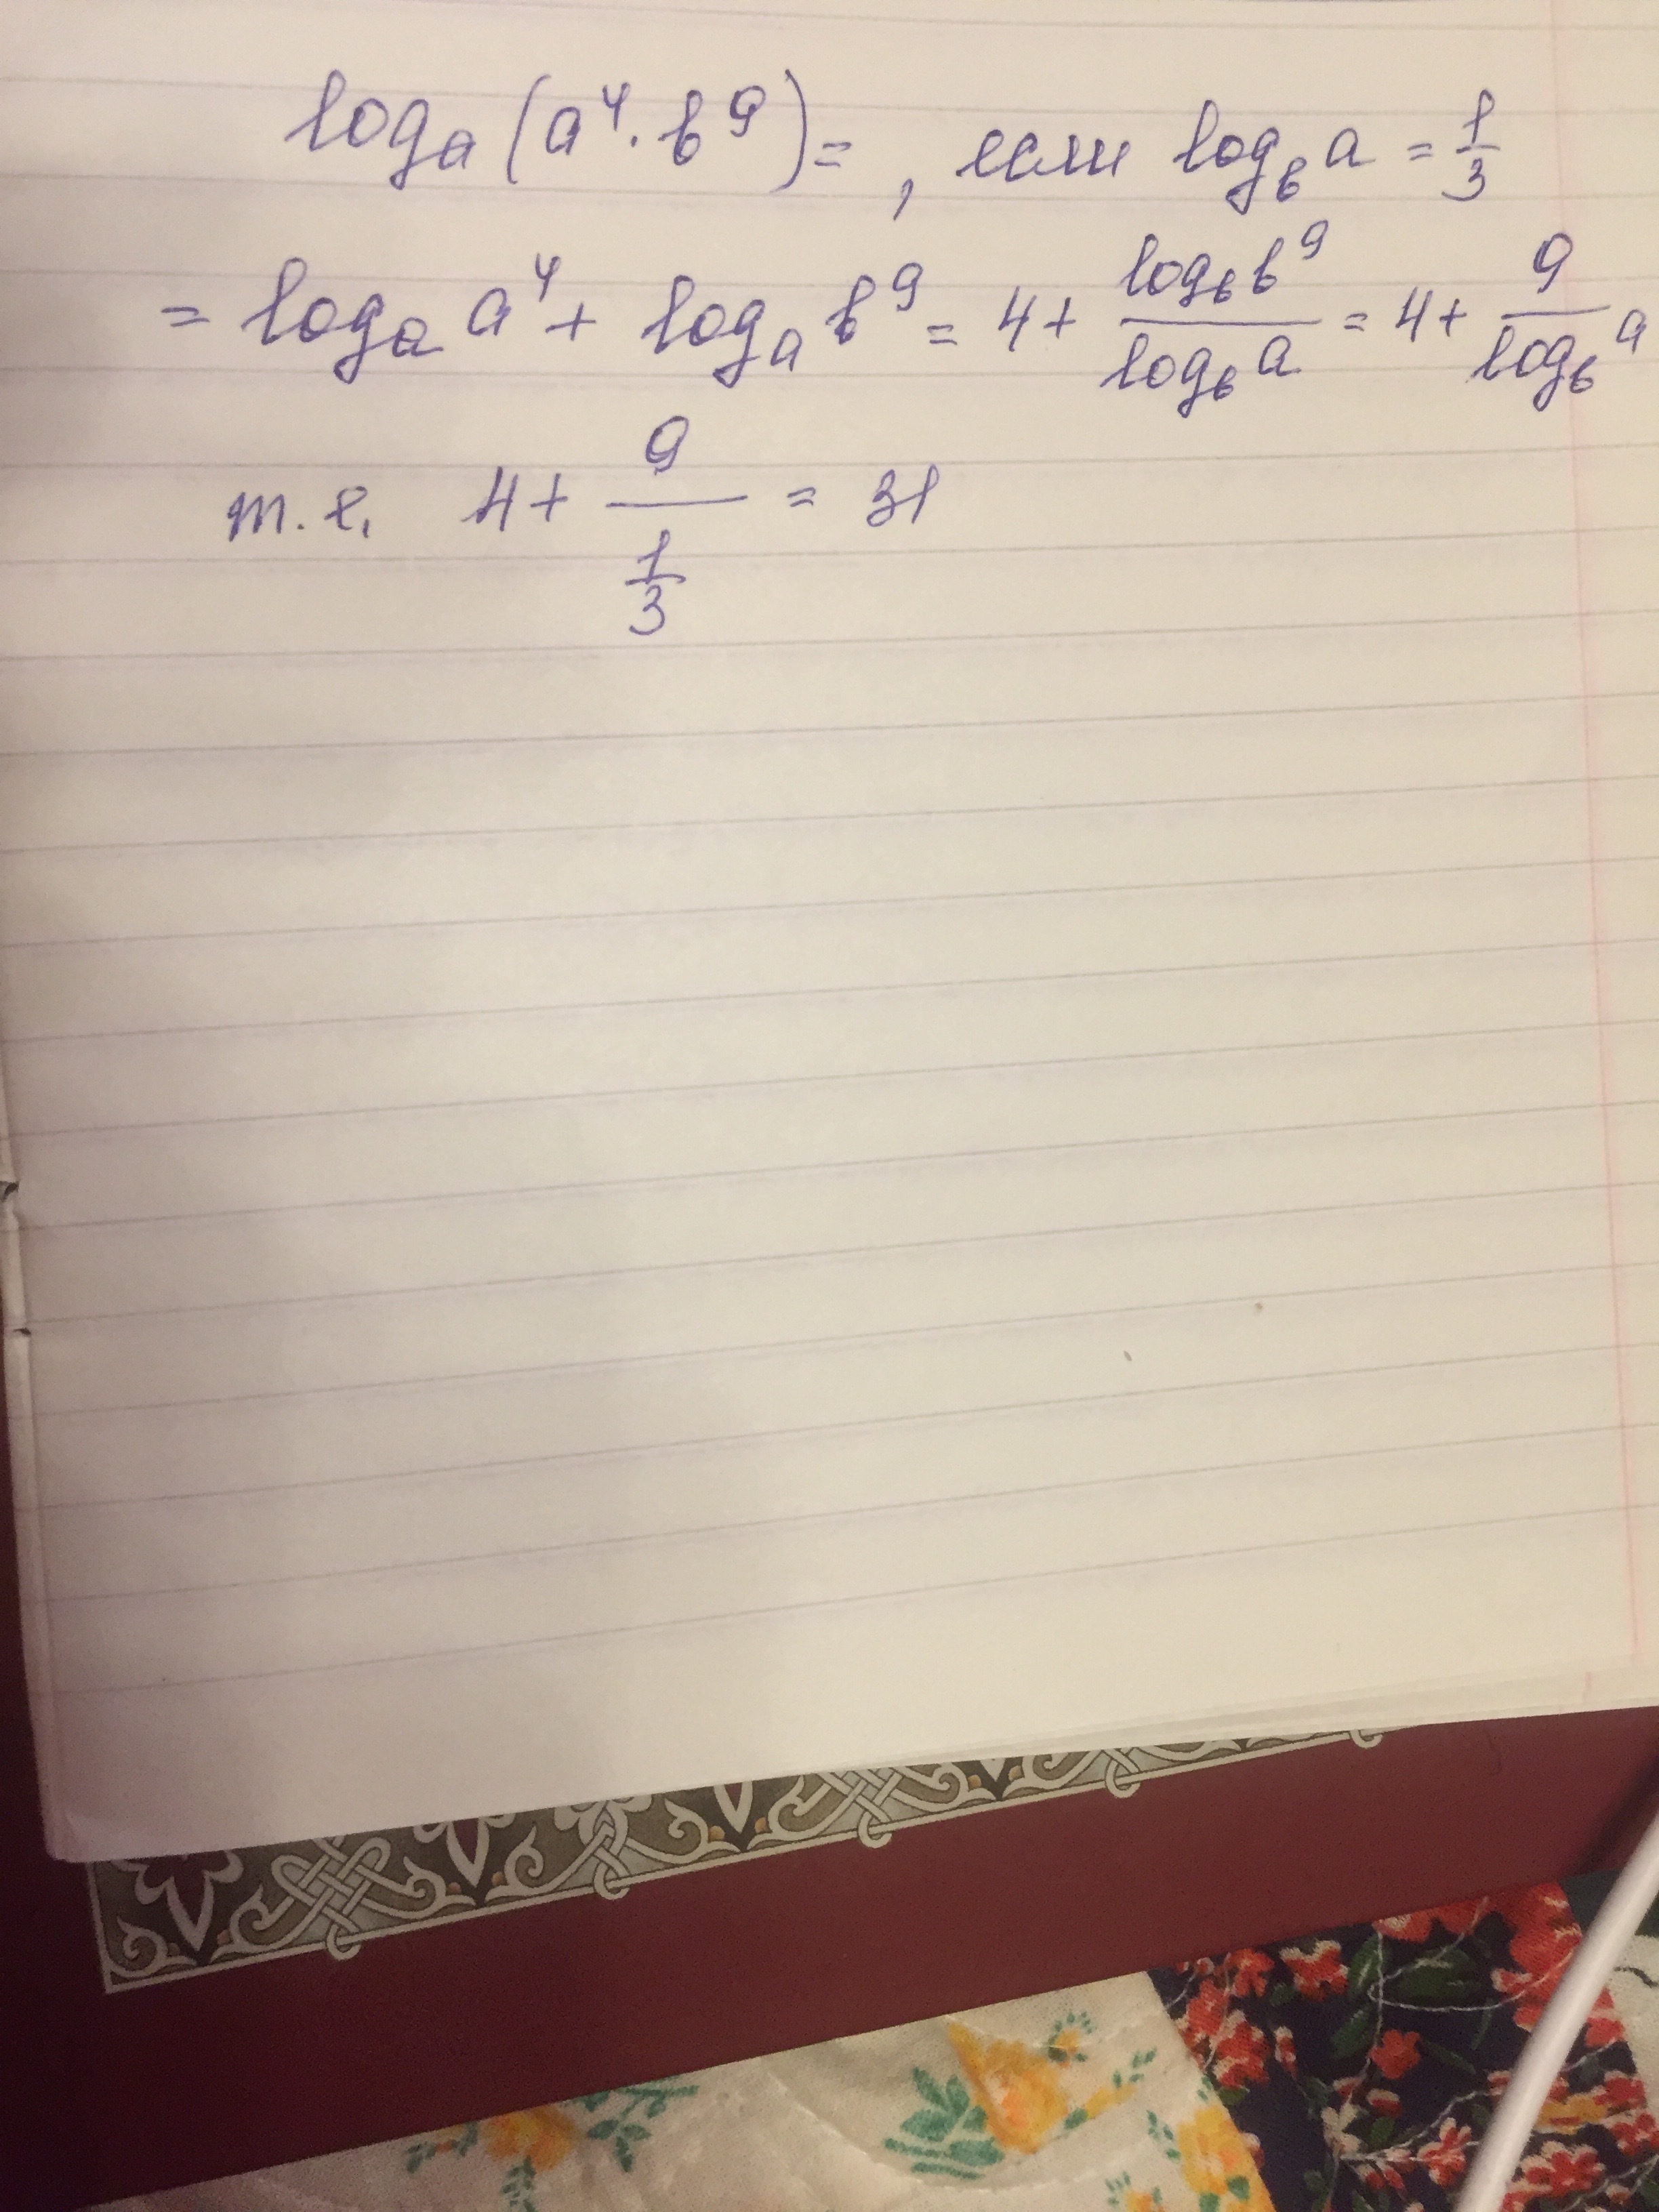 logₐ(a⁴·b⁹)= , если log_b a = 1/3
= logₐ a⁴ + logₐ b⁹ = 4 + log_b b⁹ / log_b a = 4 + 9 / log_b a
т.е. 4 + 9 / (1/3) = 31